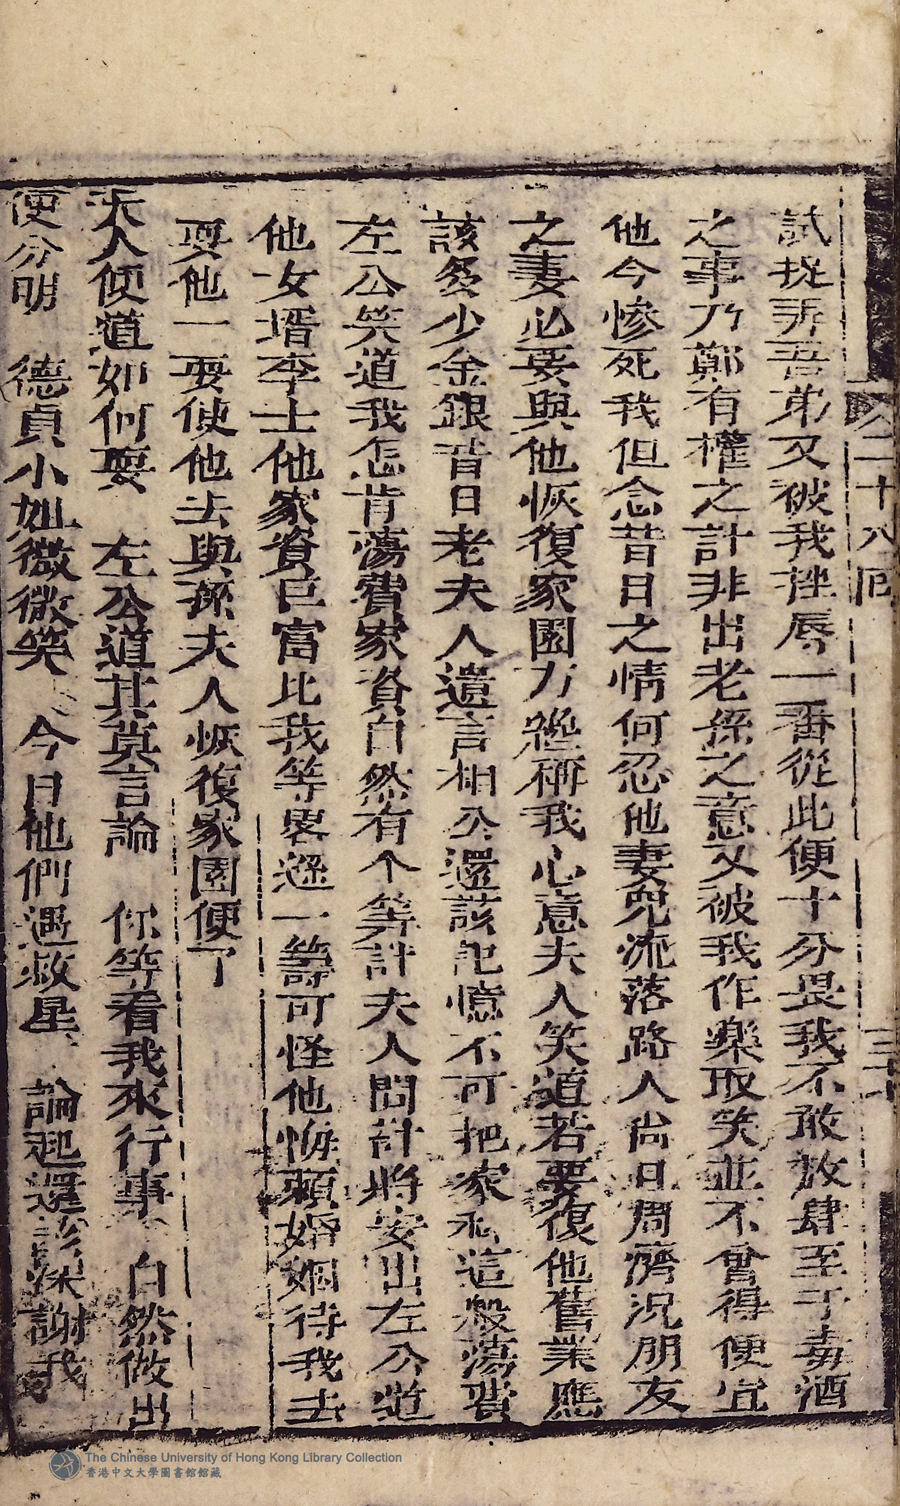 卷二十八回
三十
試捉弄吾弟又被我挫辱一番從此便十分畏我不敢放肆至于毒酒
之事乃鄭有權之計非出老孫之意又被我作樂取笑並不曾得便宜
他今慘死我但念昔日之情何忍他妻兒流落路人尚日周濟況朋友
之妻必要與他恢復家園方纔稱我心意夫人笑道若要復他舊業應
該多少金銀昔日老夫人遺言相公還該記憶不可把家私這般蕩費
左公笑道我怎肯蕩費家資自然有个等計夫人問計將安出左公道
他女壻李士他家資巨富比我等畧遜一籌可怪他悔賴婚姻待我去
耍他一耍使他去與孫夫人恢復家園便了
夫人便道如何耍　左公道其莫言論　你等看我來行事　自然做出
便分明　德貞小姐微微笑　今日他們遇救星　論起還該深謝我
The Chinese University of Hong Kong Library Collection
香港中文大學圖書館館藏